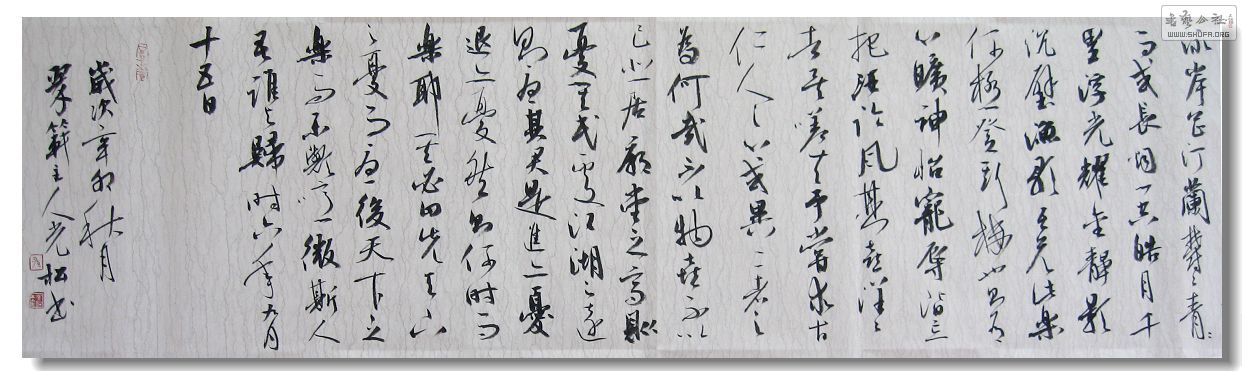 泳岸芷汀蘭鬱々青々
而或長烟一空皓月千
里浮光耀金靜影
沉壁漁歌互答此樂
何極登斯樓也則有
心曠神怡寵辱皆忘
把酒臨風其喜洋々
者矣嗟夫予嘗求古
仁人之心或異二者之
為何哉不以物喜不以
己悲居廟堂之高則
憂其民處江湖之遠
則憂其君是進亦憂
退亦憂然則何時而
樂耶其必曰先天下
之憂而憂後天下之
樂而樂歟噫微斯人
吾誰與歸時六年九月
十五日
歲次辛卯秋月
翠簃主人光松書
書藝公社
WWW.SHUFA.ORG